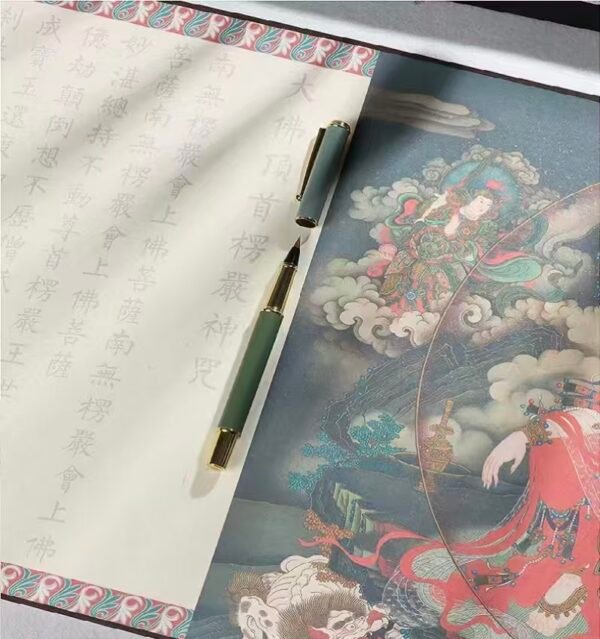 大佛頂首楞嚴神咒
南無楞嚴會上佛菩薩南無楞嚴會上佛
菩薩南無楞嚴會上佛菩薩
妙湛總持不動尊首楞嚴王世
億劫顛倒想不歷僧祇
成寶王還度
利